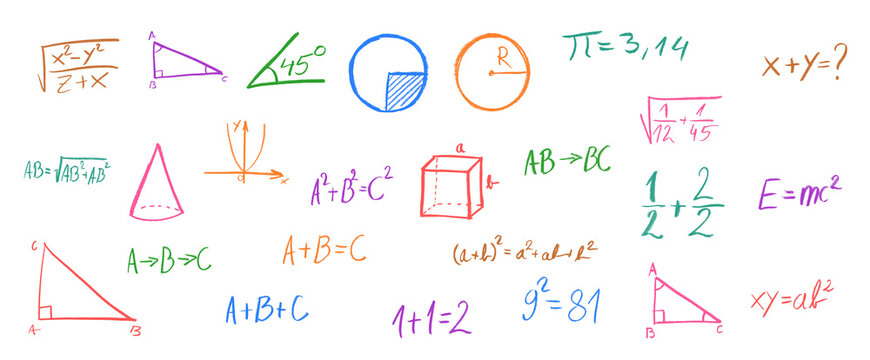 √((x²-y²)/(z+x))
A
B
C
45°
R
π=3,14
x+y=?
√(1/12+1/45)
AB=√AB²+AB²
y
0
x
A²+B²=C²
a
b
AB→BC
1/2+2/2
E=mc²
C
A
B
A→B→C
A+B=C
(a+b)²=a²+ab+b²
A+B+C
1+1=2
9²=81
A
B
C
xy=ab²